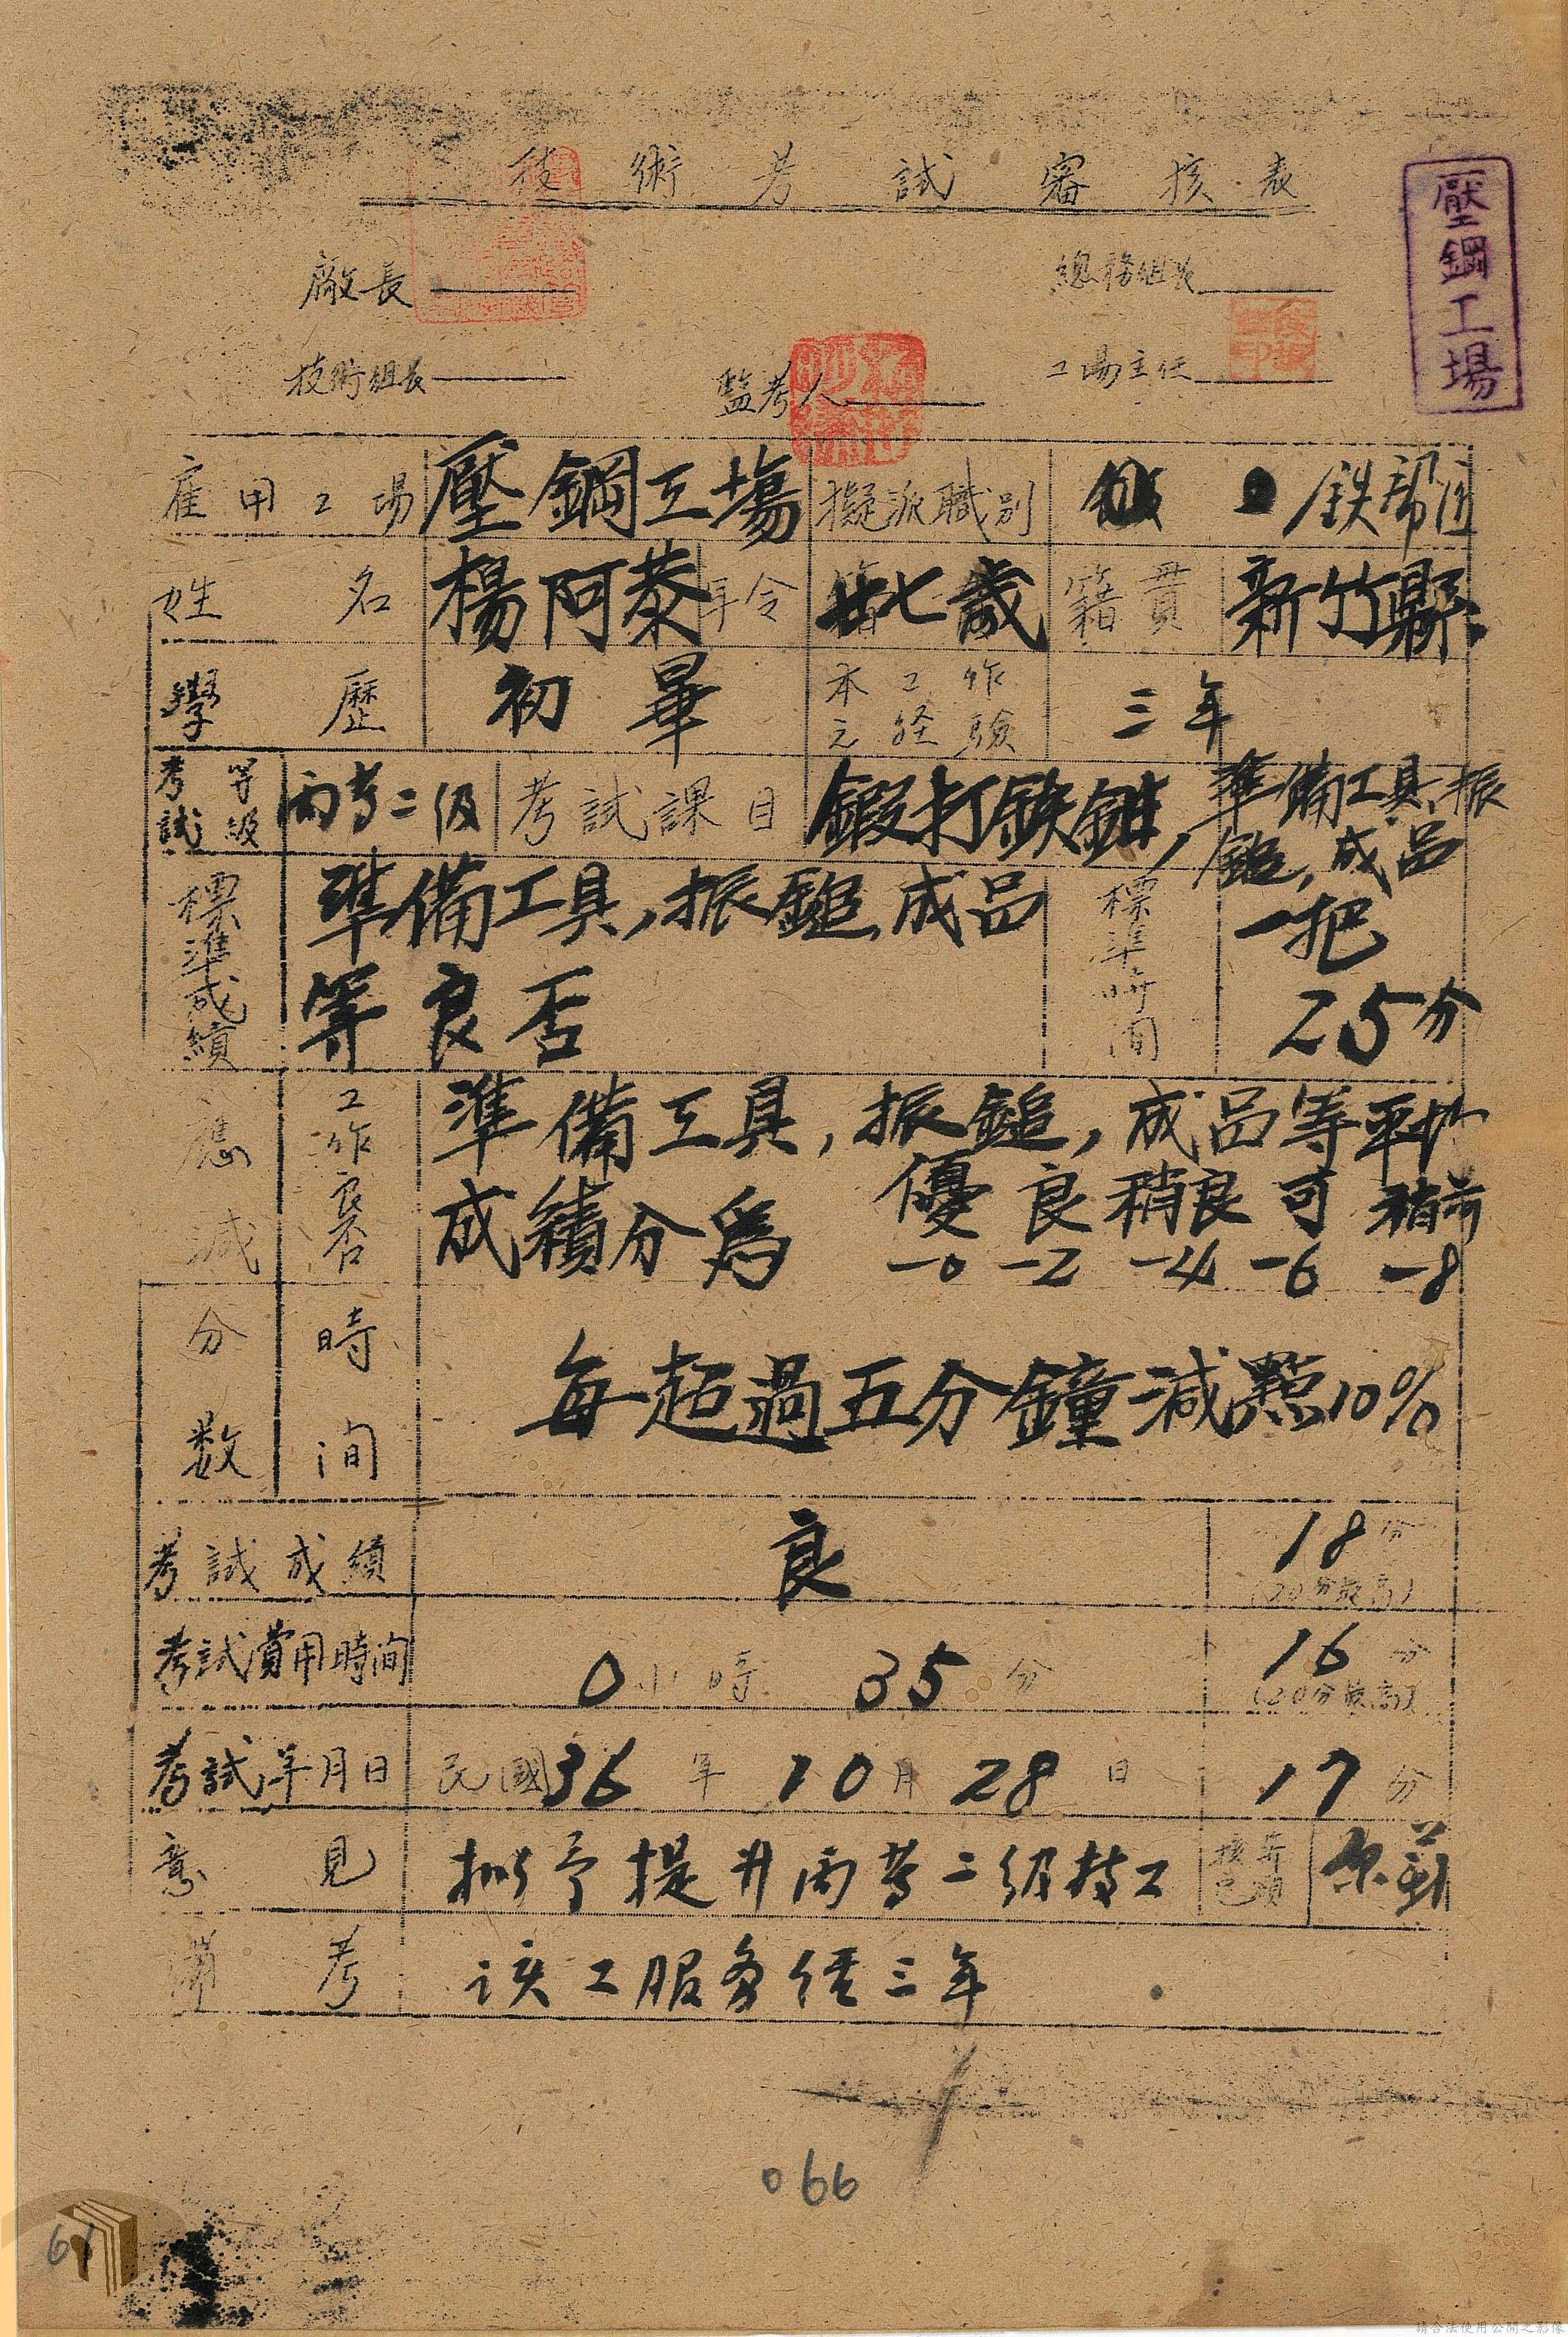 技術考試審核表
壓鋼工場
廠長 總務組長
技術組長 監考人 工場主任
雇用工場 壓鋼工場 擬派職別 鉄幇近
姓名 楊阿恭 年令 廿七歲 籍貫 新竹縣
學歷 初畢 本工作元經驗 三年
考試等級 丙等二級 考試課目 鍛打鉄鉗,準備工具,振鎚,成品
標準成績 準備工具,振鎚,成品等良否 標準時间 一把 25分
應減分数 工作良否 準備工具,振鎚,成品等平均
成績分為 優 良 稍良 可 稍可
-0 -2 -4 -6 -8
時间 每超過五分鐘減點10%
考試成績 良 18分
(20分最高)
考試費用時间 0小時35分 16分
(20分最高)
考試年月日 民國36年10月28日 17分
意見 擬予提升丙等二級技工
備考 該工服务經三年
066
請合法使用公開之影像